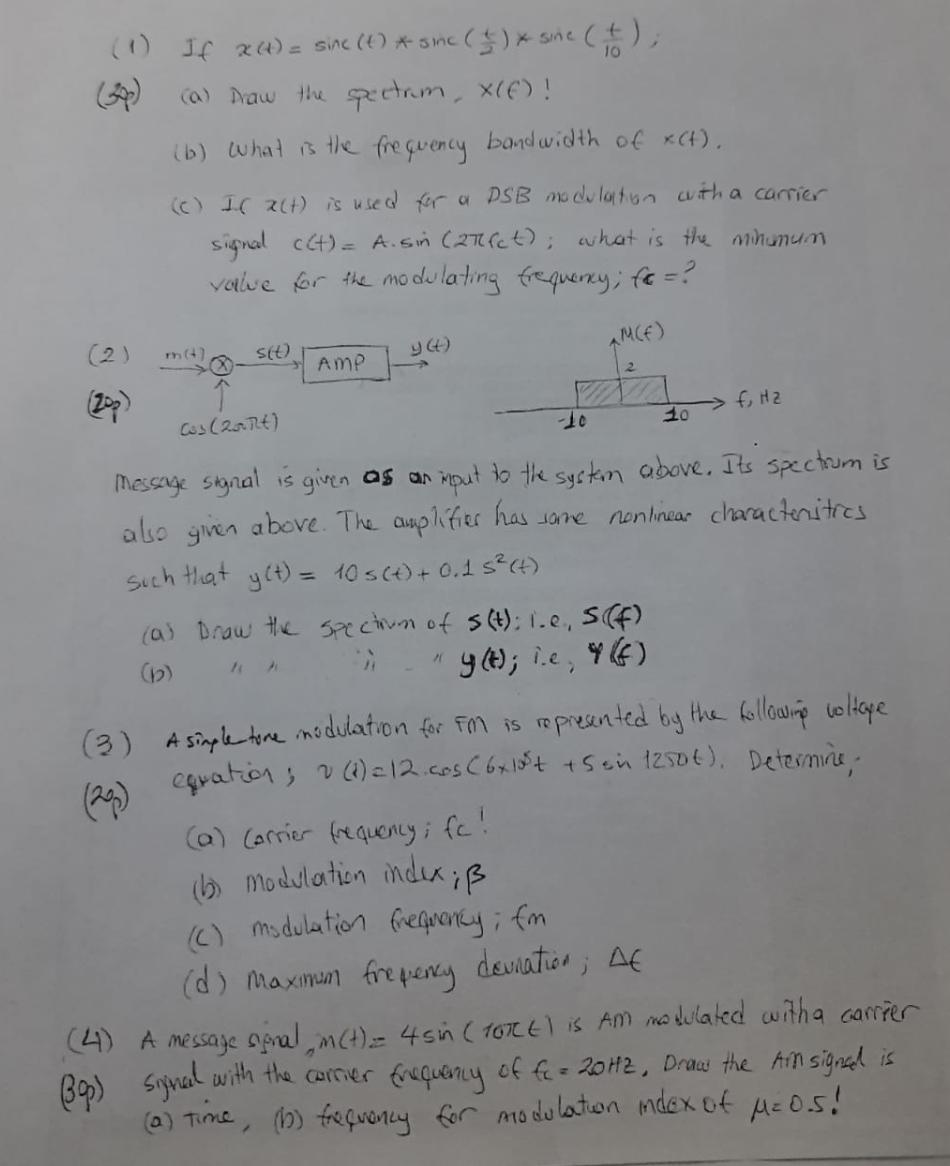 (1) If x(t) = sinc(t) * sinc(t/5) * sinc(t/10);
(30p) (a) Draw the spectrum, X(f)!
(b) What is the frequency bandwidth of x(t).
(c) If x(t) is used for a DSB modulation with a carrier
signal c(t) = A.sin(2πfct); what is the minumum
value for the modulating frequency; fc = ?
(2) m(t) X s(t) AMP y(t) M(f)
2
(20p) cos(200πt) -10 10 f, Hz
Message signal is given as an input to the system above. Its spectrum is
also given above. The amplifier has some nonlinear characteristics
such that y(t) = 10 s(t) + 0.1 s²(t)
(a) Draw the spectrum of s(t); i.e., S(f)
(b) " " " " y(t); i.e., Y(f)
(3) A simple tone modulation for FM is represented by the following voltage
(20p) equation; v(t) = 12.cos(6x10⁸t + 5 sin 1250t). Determine;
(a) Carrier frequency; fc!
(b) modulation index; β
(c) modulation frequency; fm
(d) Maximum frequency deviation; Δf
(4) A message signal, m(t) = 4 sin(10πt) is AM modulated with a carrier
(30p) signal with the carrier frequency of fc = 20Hz. Draw the AM signal is
(a) Time, (b) frequency for modulation index of μ = 0.5!